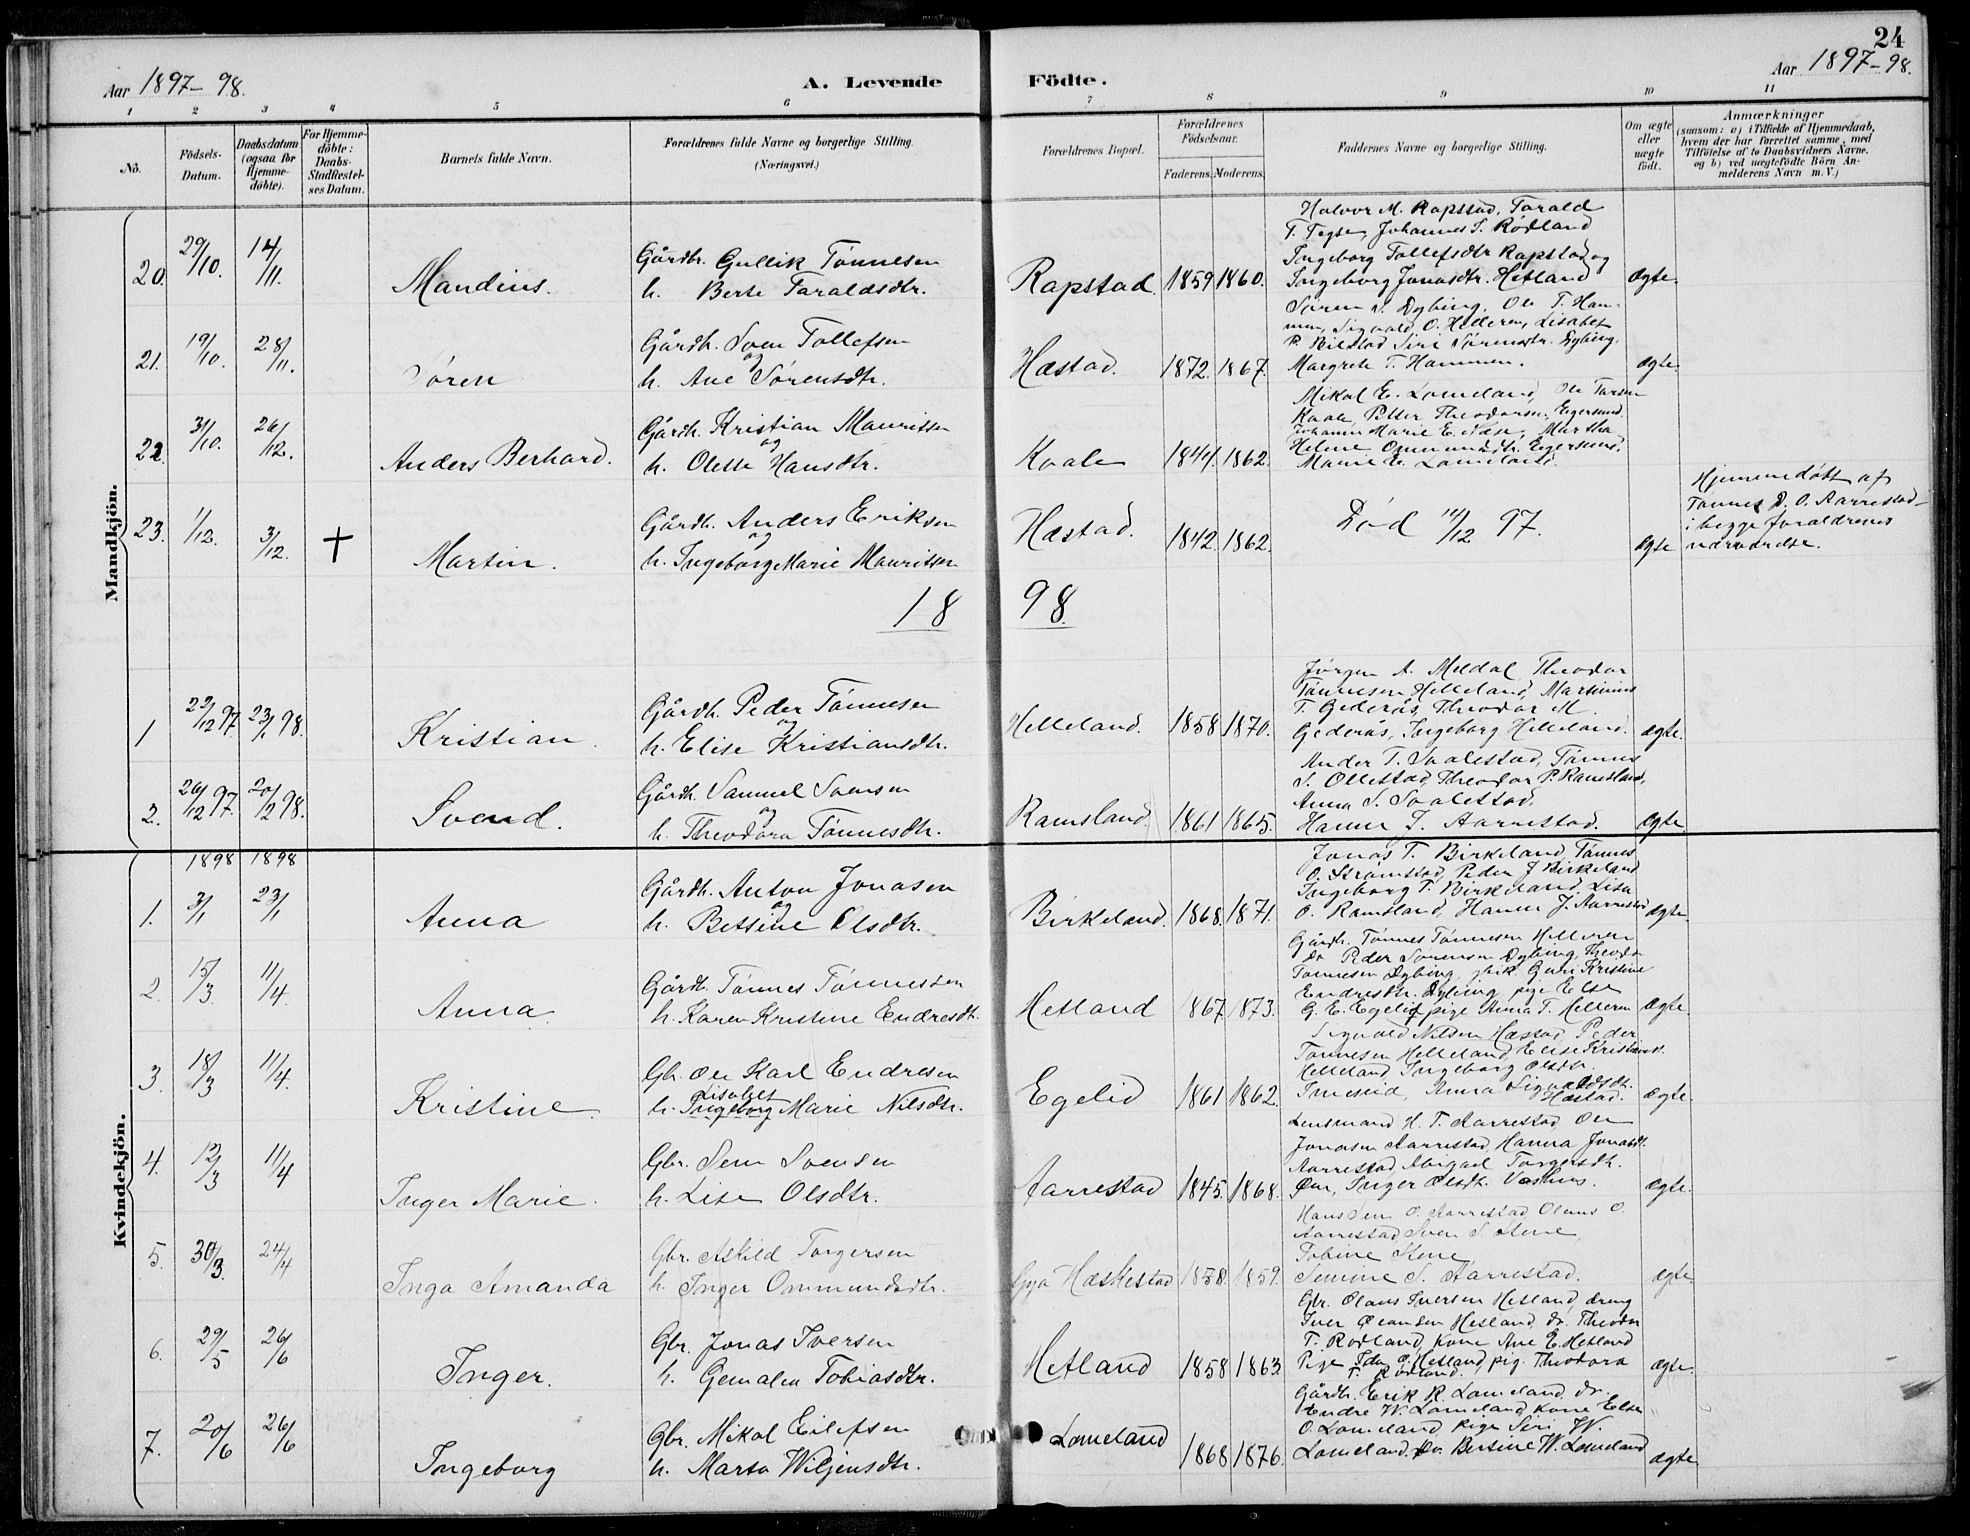 24
Aar 1897-98.
A. Levende Födte.
Aar 1897-98.
1 2 3 4 5 6 7 8 9 10 11
No.
Födsels-Datum.
Daabsdatum (ogsaa for Hjemme-döbte).
For Hjemme-döbte: Daabs-Stadfæstel-ses Datum.
Barnets fulde Navn.
Forældrenes fulde Navne og borgerlige Stilling. (Næringsvei.)
Forældrenes Bopæl.
Forældrenes Födselsaar.
Faderens. Moderens.
Faddernes Navne og borgerlige Stilling.
Om ægte eller uægte födt.
Anmærkninger
(saasom: a) i Tilfælde af Hjemmedaab, hvem der har forrettet samme, med Tilföielse af to Daabsvidners Navne. og b) ved uægtefödte Börn An-melderens Navn m. V.)
Mandkjön.
20. 29/10. 14/11. Mandius.
Gårdbr. Gullik Tönnesen
h. Berte Taraldsdtr.
Rapstad. 1859 1860.
Halvor M. Rapstad, Tarald
Johannes S. Rødland
Ingeborg Tollefsdtr Rapstad og
Ingeborg Jonasdtr. Hetland
ægte.
21. 19/10. 28/11. Søren
Gårdb. Sven Tollefsen
og
h. Ane Sørensdtr.
Hæstad. 1872. 1867.
Søren S. Dybing, Ole T. Ham-
men, Sigvald O. Helleren, Lisabet
Siri Sørensdtr. Dybing.
Margrete T. Hammen.
ægte.
22. 31/10. 26/12. Anders Berhard.
Gårdb. Kristian Mauritsen
og
h. Olette Hansdtr.
Kvale 1844. 1862.
Mikal E. Lomeland, Ole Tarsen
Kvale, Petter Theodorsen, Egersund,
Johanne Marie E. Næse, Martha
Helene Ommundsdtr. Egersund.
Marie E. Lomeland.
23. 1/12. 3/12. + Martin.
Gårdb. Anders Eriksen
og
h. Ingeborg Marie Mauritsen
Hæstad. 1842. 1862.
Död 14/12 97.
ægte
Hjemmedöbt af
Tønnes D. O. Aarrestad
i begge foraldrenes
nærværelse.
18 98.
1 22/12 97. 23/1 98. Kristian.
Gårdb. Peder Tönnesen
og
h. Elise Kristiansdtr.
Helleland. 1858 1870.
Jørgen A. Meldal, Theodor
Tönnesen Helleland, Martinius
T. Gederås, Theodor M.
Gederås, Ingeborg Helleland.
ægte.
2. 26/12 97. 20/2 98. Svend.
Gårdb. Samuel Svensen
og
h. Theodora Tönnesdtr.
Ramsland. 1861 1865.
Ander T. Svalestad, Tönnes
S. Ollestad, Theodor P. Ramsland,
Anna S. Svalestad,
Hanne J. Aarrestad.
ægte
Kvindekjön.
1898 1898
1. 3/1 23/1 Anna
Gårdb. Anton Jonasen
og
h. Betsine Olsdtr.
Birkeland. 1868. 1871.
Jonas T. Birkeland, Tönnes
O. Strømstad, Peder J Birkeland
Ingeborg T. Birkeland, Lisa
O. Ramsland, Hanne J. Aarrestad
ægte.
2. 15/3. 11/4. Anna.
Gårdb. Tönnes Tönnesen
h. Karen Kristine Endresdtr.
Hetland 1867. 1873.
Gårdb. Tönnes Tönnesen Helleren
Do Peder Sørensen Dybing, Theodor
Tönnesen Dybing, pike Guri Kristine
Endresdtr. Dybing pige Else
G. E. Egelid, pige Anna T. Helleren
ægte.
3. 18/3 11/4. Kristine.
Gbr. Ole Karl Endresen
Lisabet
h. Ingeborg Marie Nilsdtr.
Egelid 1861 1862.
Sigvald Nilsen Hæstad, Peder
Tönnesen Helleland, Elise Kristiansdt.
Helleland, Ingeborg Olsdtr.
Anna Sigvaldsdtr.
Hæstad.
ægte.
4. 12/3 11/4 Inger Marie.
Gbr. Sem Svensen
h. Lise Olsdtr.
Aarrestad 1845. 1868.
Lensmand H. T. Aarrestad Ole
Jonasen Aarrestad, Hanna Jonasdt.
Aarrestad, Abigael Torgersdtr.
Inger Olsdtr. Vashus.
ægte.
5. 30/3. 24/4 Inga Amanda
Gbr. Askild Torgersen
h. Inger Ommundsdtr.
Gya Hæskestad 1858. 1859.
Hans Sem O. Aarrestad Olaus O.
Aarrestad, Sven S. Stene,
Tobine Stene
Semine S. Aarrestad.
ægte
6. 29/5 26/6 Inger.
Gbr. Jonas Iversen
h. Gemalia Tobiasdtr.
Hetland 1858 1863.
Gbr. Olaus Iversen Hetland, dreng
Iver Olausen Hetland, dr. Theodor
T. Rødland, kone Ane E. Hetland
Pige Ida O. Hetland, pig. Theodora
T. Rødland.
ægte.
7. 20/6 26/6 Ingeborg
Gbr. Mikal Eilefsen
h. Marta Wiljensdtr.
Lomeland 1868 1876.
Gårdb. Erik R. Lomeland, dr.
Endre W. Lomeland, kone Else
O. Lomeland, pige Siri W.
Lomeland. Do. Bertine W. Lomeland
ægte